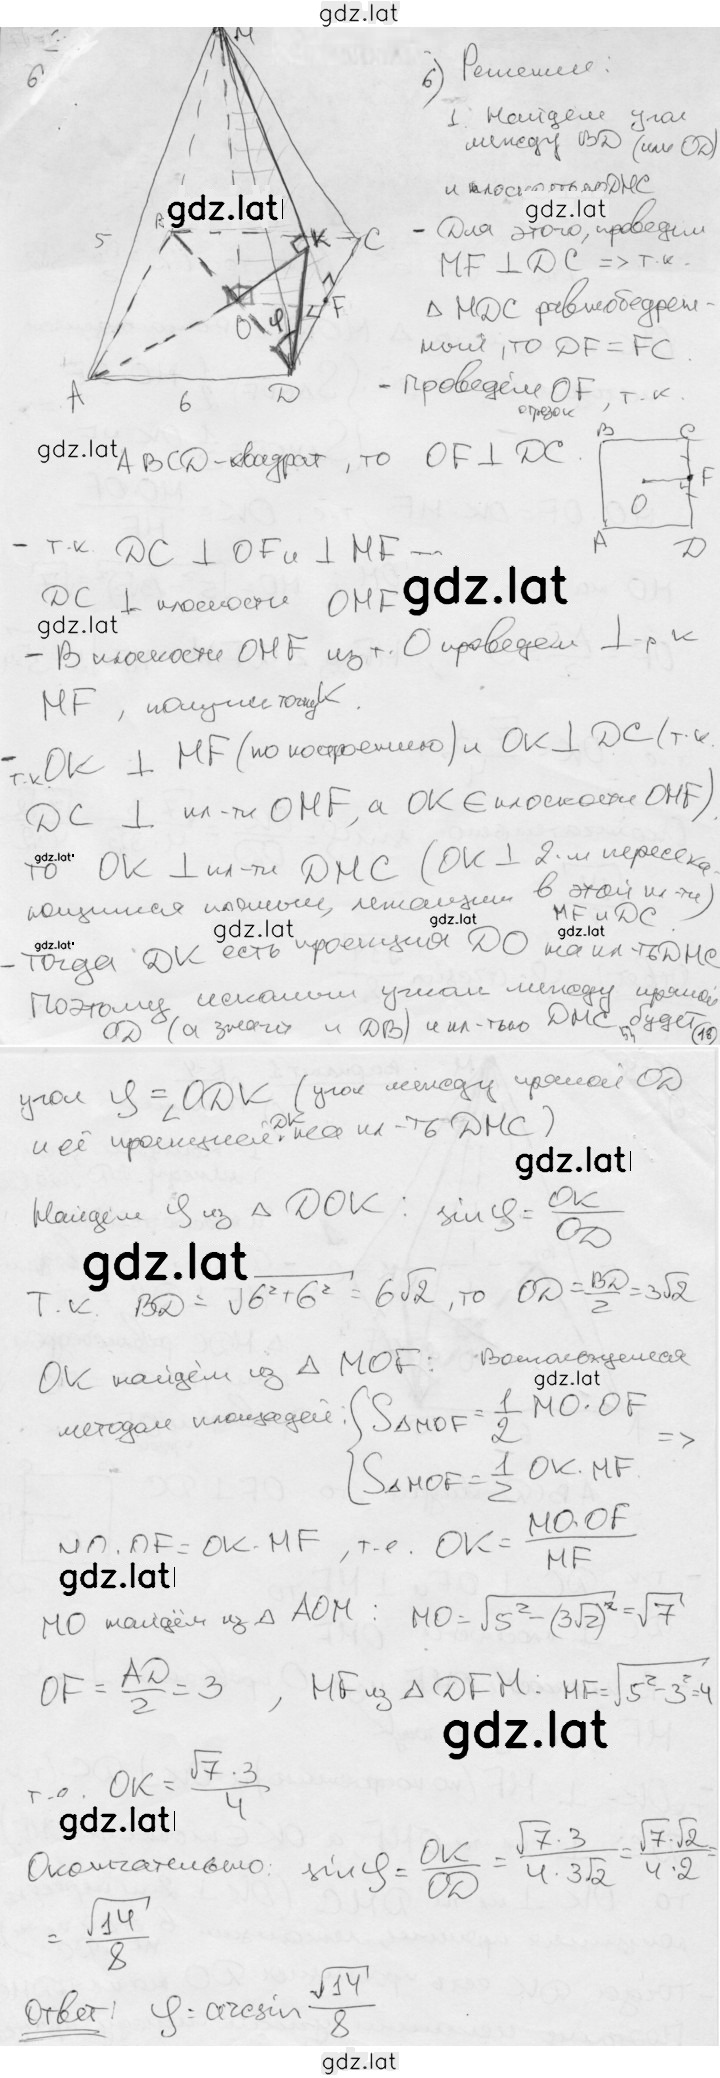 gdz.lat
6
M
5
B
C
K
F
O
φ
A
6
D
б) Решение:
1. Найдём угол
между BD (или OD)
и плоскостью DMC
gdz.lat
gdz.lat
- Для этого, проведём
MF ⊥ DC => т.к.
△ MDC равнобедрен-
ный, то DF = FC.
- Проведём OF, т.к.
отрезок
gdz.lat
ABCD - квадрат, то OF ⊥ DC.
B C
O F
A D
- т.к. DC ⊥ OF и ⊥ MF —
gdz.lat
DC ⊥ плоскости OMF
gdz.lat
- В плоскости OMF из т. O проведём ⊥-р к
MF, получим точку K.
- т.к. OK ⊥ MF (по построению) и OK ⊥ DC (т.к.
DC ⊥ пл-ти OMF, а OK ∈ плоскости OMF)
gdz.lat
то OK ⊥ пл-ти DMC (OK ⊥ 2-м пересека-
ющимся прямым, лежащим в этой пл-ти)
MF и DC
gdz.lat
gdz.lat
gdz.lat
gdz.lat
- Тогда DK есть проекция DO на пл-ть DMC
Поэтому искомым углом между прямой
OD (а значит и DB) и пл-тью DMC будет
(18)
угол φ = ∠ODK (угол между прямой OD
и её проекцией DK на пл-ть DMC)
gdz.lat
Найдём φ из △ DOK: sinφ = OK/OD
gdz.lat
Т.к. BD = √6²+6² = 6√2, то OD = BD/2 = 3√2
OK найдём из △ MOF: Воспользуемся
gdz.lat
методом площадей: { S△MOF = 1/2 MO·OF =>
{ S△MOF = 1/2 OK·MF
MO·OF = OK·MF, т.е. OK = MO·OF/MF
gdz.lat
MO найдём из △ AOM: MO = √5²-(3√2)² = √7
OF = AD/2 = 3, MF из △ DFM: MF = √5²-3² = 4
gdz.lat
т.е. OK = √7·3/4
gdz.lat
Окончательно: sinφ = OK/OD = √7·3/4·3√2 = √7·√2/4·2 =
= √14/8
Ответ: φ = arcsin √14/8
gdz.lat